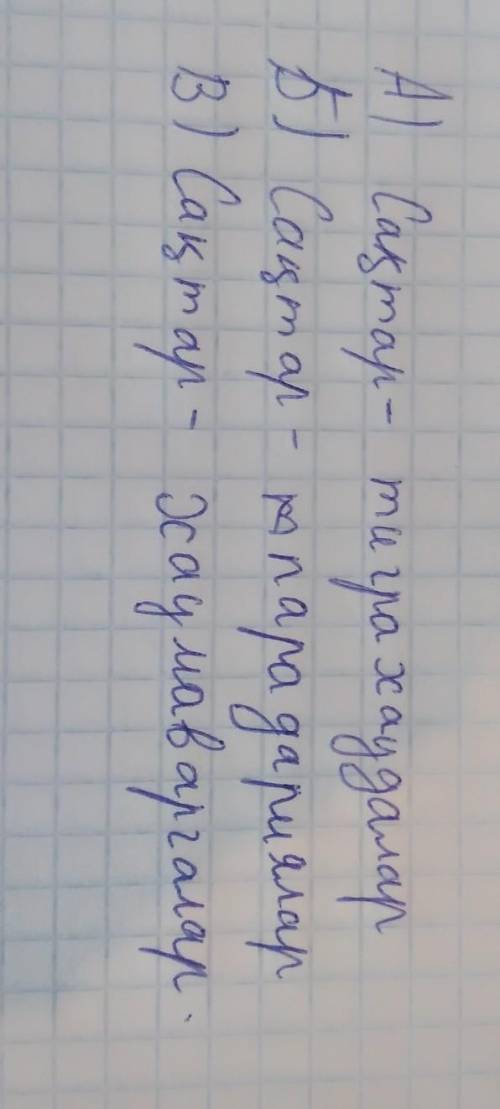 А) Сақтар - тиграхаудалар
Б) Сақтар - парадариялар
В) Сақтар - хаумаваргалар.